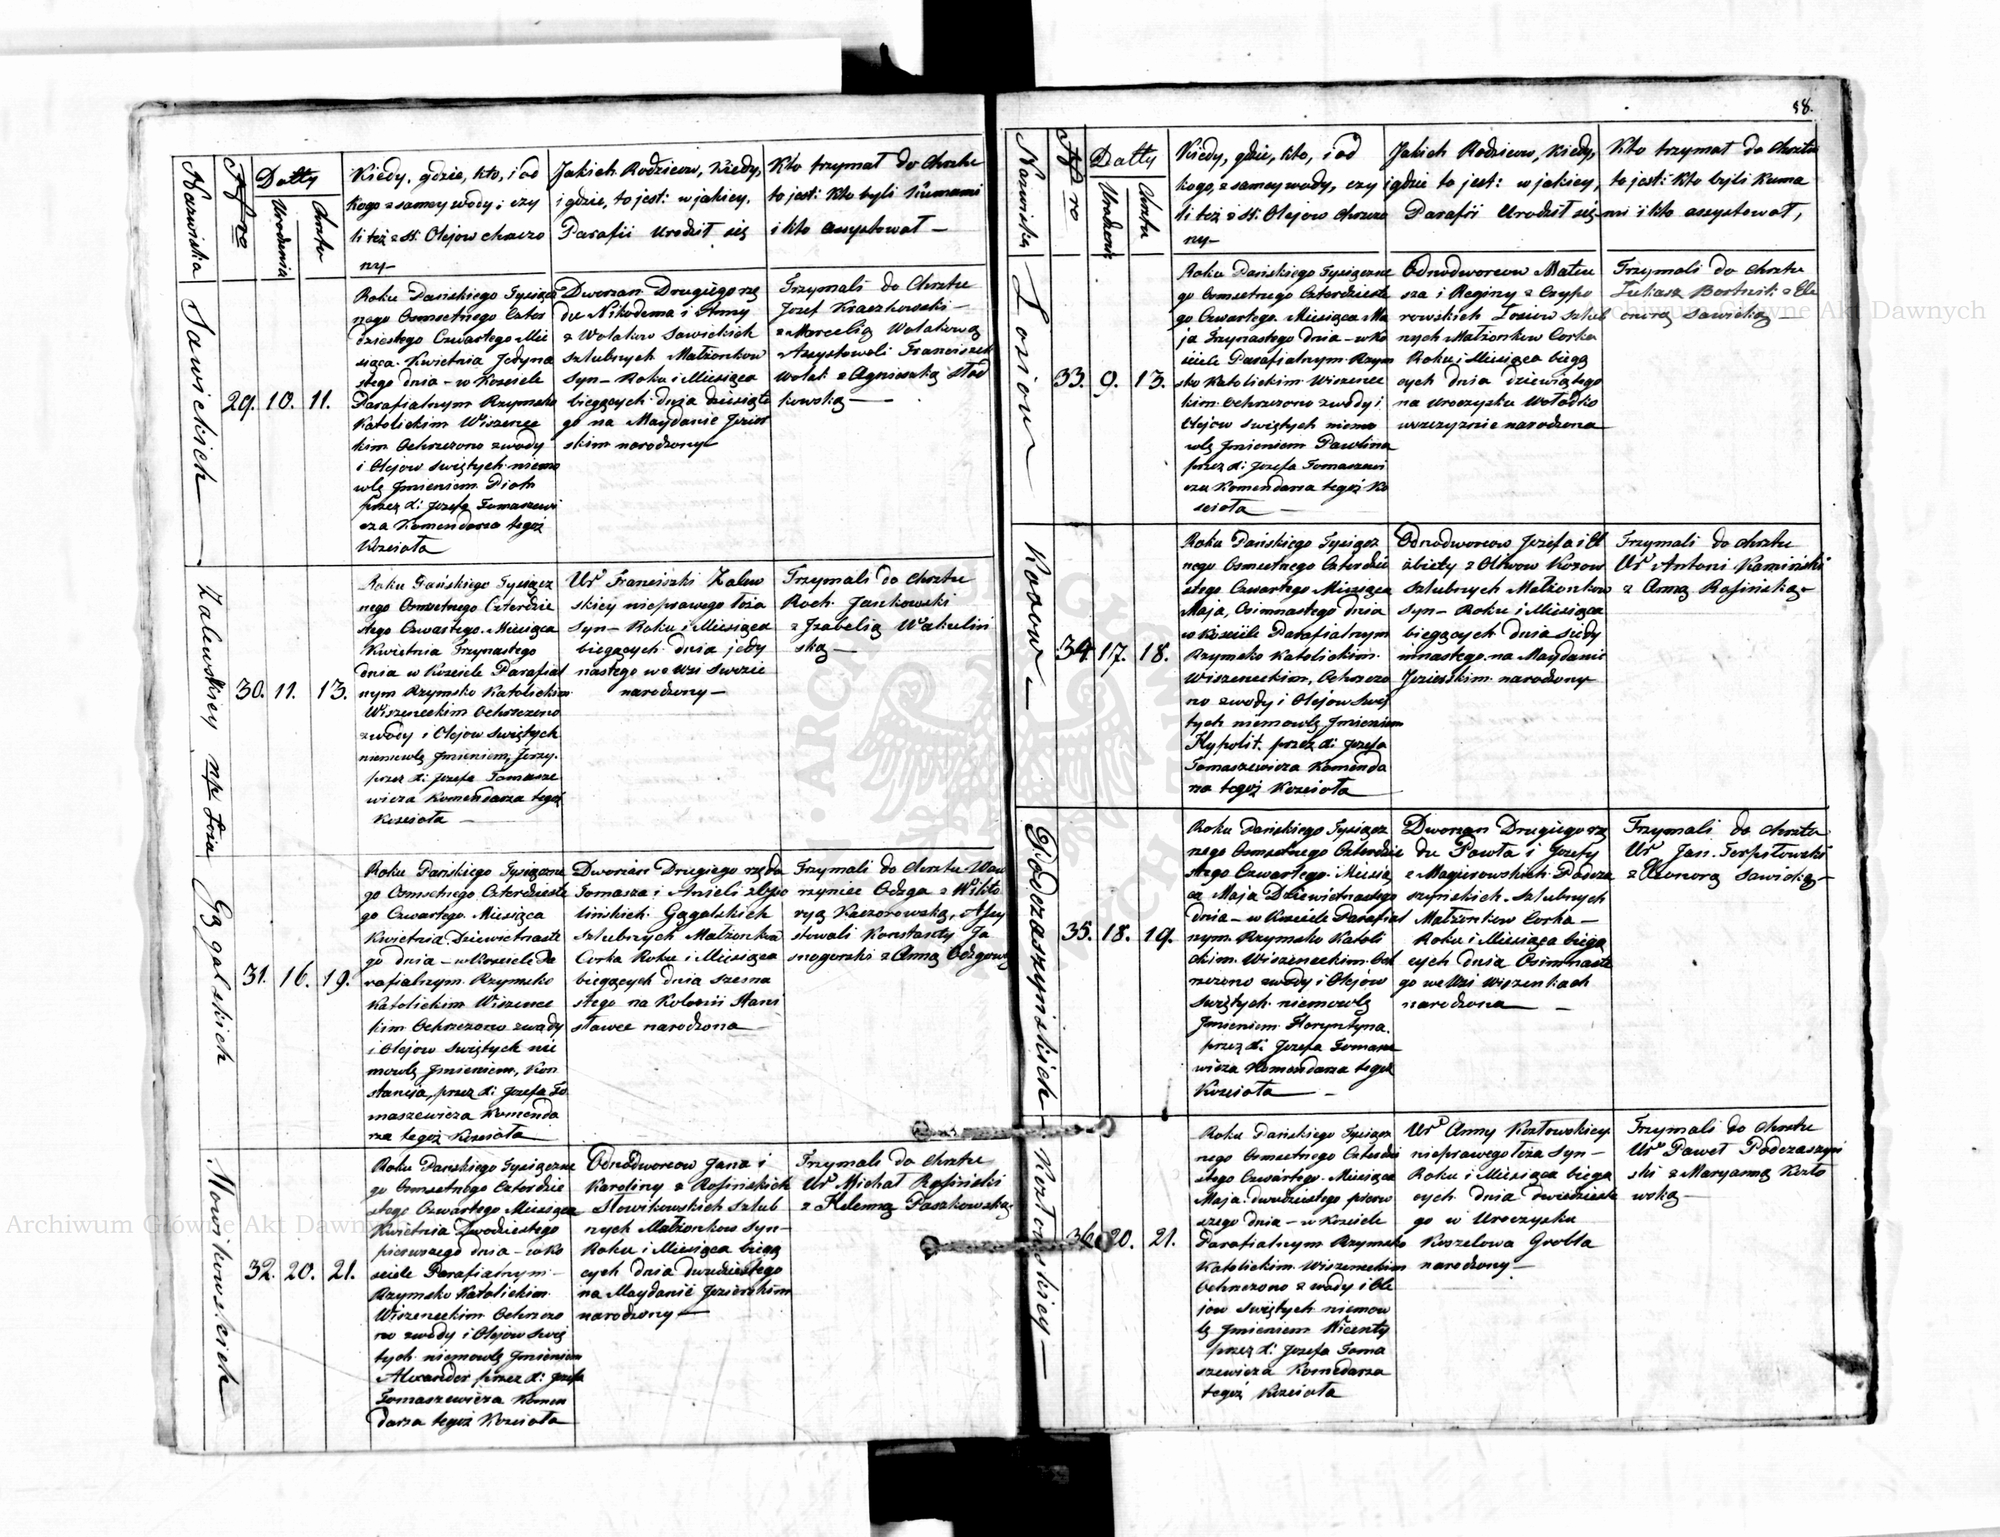 Nazwiska
Nro
Datty
Urodzenia
Chrztu
Kiedy, gdzie, kto, i od
kogo z samey wody, czy
li też z SS. Olejow chrzczo
ny—
Jakich Rodzicow, Kiedy,
i gdzie, to jest: w jakiey,
Parafii Urodził się
Kto trzymał do Chrztu
to jest: Kto byli Kumami
i kto assystował—
Sawickich
29. 10. 11.
Roku Pańskiego Tysiącz
nego Osmsetnego Czter
dziestego Czwartego Mie
siąca Kwietnia Jedyna
stego dnia — w Kosciele
Parafialnym Rzymsko
Katolickim Wiszenec
kim Ochrzczono z wody
i Olejow Swiętych niemo
wlę Jmieniem Piotr
przez X: Jozefa Tomaszewi
cza Komendarza tegoż
Koscioła
Dworzan Drugiego rzę
du Nikodema i Anny
z Wolakow Sawickich
Szlubnych Małżonkow
Syn — Roku i Miesiąca
bieżących dnia dziesiąte
go na Maydanie Jezior
skim narodzony
Trzymali do Chrztu
Jozef Kraszkowski —
z Marcelią Wolakową
Asystowali Franciszek
Wolak z Agnieszką Sład
kowską —
Zalewskiey np: Łoża
30. 11. 13.
Roku Pańskiego Tysiącz
nego Osmsetnego Czterdzie
stego Czwartego Miesiąca
Kwietnia Trzynastego
dnia w Kosciele Parafial
nym Rzymsko Katolickim
Wiszeneckim Ochrzczono
z wody i Olejow Swiętych
niemowlę Jmieniem, Jerzy.
przez X: Jozefa Tomasze
wicza Komendarza tegoż
Koscioła —
Ur° Franciszki Zalew
skiey nieprawego łoża
Syn — Roku i Miesiąca
bieżących dnia jedy
nastego we Wsi Swozie
narodzony —
Trzymali do Chrztu
Roch Jankowski
z Izabellą Wakuliń
ską —
Gągalskich
31. 16. 19.
Roku Pańskiego Tysiączne
go Osmsetnego Czterdzieste
go Czwartego Miesiąca
Kwietnia Dziewietnaste
go dnia — w Kosciele Pa
rafialnym Rzymsko
Katolickim Wiszenec
kim Ochrzczono z wody
i Olejow Swiętych nie
mowlę Jmieniem, Kon
stancja, przez X: Jozefa To
maszewicza Komenda
rza tegoż Koscioła
Dworzan Drugiego rzędu
Tomasza i Anieli z
lińskich Gągalskich
Szlubnych Małżonkow
Corka Roku i Miesiąca
bieżących dnia szesna
stego na Kolonii Stani
sławce narodzona —
Trzymali do Chrztu Waw
rzyniec Ożga z Wikto
ryą Kaczorowską. Assy
stowali Konstanty Ja
snogorski z Anną Ożgową
Słowikowskich
32. 20. 21.
Roku Pańskiego Tysiączne
go Osmsetnego Czterdzie
stego Czwartego Miesiąca
Kwietnia Dwudziestego
pierwszego dnia — w Ko
sciele Parafialnym —
Rzymsko Katolickim
Wiszeneckim Ochrzczo
no z wody i Olejow Swię
tych niemowlę Jmieniem
Alexander przez X: Jozefa
Tomaszewicza Komen
darza tegoż Koscioła
Odnodworcow Jana i
Karoliny z Rosińskich
Słowikowskich Szlub
nych Małżonkow Syn —
Roku i Miesiąca bieżą
cych dnia dwudziestego
na Maydanie Jezierskim
narodzony —
Trzymali do Chrztu
Ur° Michał Rosiński
z Helenną Paszkowską
88.
Nazwiska
Nro
Datty
Urodzenia
Chrztu
Kiedy, gdzie, kto, i od
kogo, z samey wody, czy
li też z SS. Olejow Chrzczo
ny —
Jakich Rodzicow, Kiedy,
i gdzie to jest: w jakiey,
Parafii Urodził się
Kto trzymał do Chrztu
to jest: Kto byli Kuma
mi i kto assystował,
Łosiow
33. 9. 13.
Roku Pańskiego Tysiączne
go Osmsetnego Czterdzieste
go Czwartego Miesiąca Ma
ja Trzynastego dnia — w Ko
sciele Parafialnym Rzym
sko Katolickim Wiszenec
kim Ochrzczono z wody i
Olejow Swiętych niemo
wlę Jmieniem Pawlina
przez X: Jozefa Tomaszewi
cza Komendarza tegoż Ko
scioła —
Odnodworcow Mateu
sza i Reginy z Czypo
rowskich Łosiow Szlub
nych Małżonkow Corka
Roku i Miesiąca bieżą
cych dnia dziewiątego
na Uroczysku Wołodko
wszczyznie narodzona
Trzymali do Chrztu
Łukasz Bortnik z Ele
onorą Sawicką —
Kozow
34. 17. 18.
Roku Pańskiego Tysiącz
nego Osmsetnego Czterdzie
stego Czwartego Miesiąca
Maja, Osimnastego dnia
w Kosciele Parafialnym
Rzymsko Katolickim
Wiszeneckim, Ochrzczo
no z wody i Olejow Swię
tych niemowlę Jmieniem
Hypolit przez X: Jozefa
Tomaszewicza Komenda
rza tegoż Koscioła —
Odnodworcow Jozefa i El
żbiety z Oltow Kozow
Szlubnych Małżonkow
Syn — Roku i Miesiąca
bieżących dnia siedy
mnastego na Maydanie
Jezierskim narodzony
Trzymali do Chrztu
Ur° Antoni Kamiński
z Anną Rosińską —
Podczaszyńskich
35. 18. 19.
Roku Pańskiego Tysiącz
nego Osmsetnego Czterdzie
stego Czwartego Miesią
ca Maja Dziewietnastego
dnia — w Kosciele Parafial
nym Rzymsko Katoli
ckim Wiszeneckim Och
rzczono z wody i Olejow
Swiętych niemowlę
Jmieniem Floryntyna
przez X: Jozefa Tomasze
wicza Komendarza tegoż
Koscioła —
Dworzan Drugiego rzę
du Pawła i Jozefy
z Magierowskich Podcza
szyńskich Szlubnych
Małżonkow Corka —
Roku i Miesiąca bieżą
cych dnia Osimnaste
go we Wsi Wiszenkach
narodzona —
Trzymali do Chrztu
Ur° Jan Terpiłowski
z Eleonorą Sawicką —
Kozłowskiey —
36. 20. 21.
Roku Pańskiego Tysiącz
nego Osmsetnego Czterdzie
stego Czwartego Miesiąca
Maja dwudziestego pierw
szego dnia — w Kosciele
Parafialnym Rzymsko
Katolickim Wiszeneckim
Ochrzczono z wody i Ole
jow Swiętych niemow
lę Jmieniem Wicenty
przez X: Jozefa Toma
szewicza Komendarza
tegoż Koscioła
Ur° Anny Kozłowskiey
nieprawego łoża Syn —
Roku i Miesiąca bieżą
cych dnia dwudzieste
go w Uroczysku
Koszelowa Grobla
narodzony —
Trzymali do Chrztu
Ur° Paweł Podczaszyń
ski z Maryanną Kozło
wską —
Archiwum Główne Akt Dawnych
Archiwum Główne Akt Dawnych